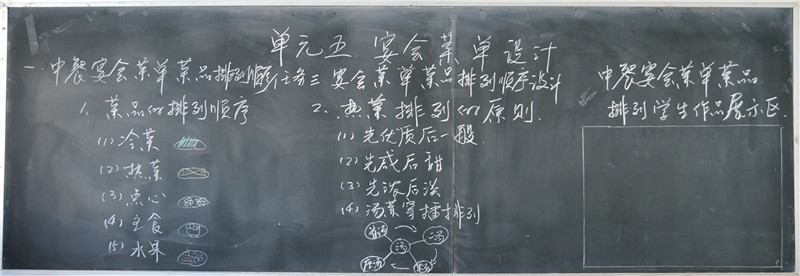 单元五 宴会菜单设计
任务三 宴会菜单菜品排列顺序设计
一、中餐宴会菜单菜品排列顺序
1. 菜品的排列顺序
(1) 冷菜
(2) 热菜
(3) 点心
(4) 主食
(5) 水果
2. 热菜排列的原则
(1) 先优质后一般
(2) 先咸后甜
(3) 先浓后淡
(4) 汤菜穿插排列
汤
汤
中餐宴会菜单菜品
排列学生作品展示区